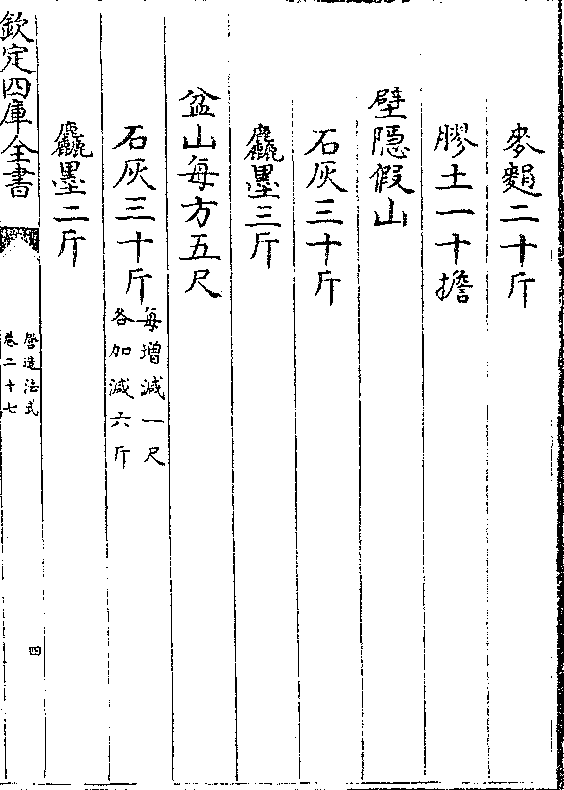 麥䴷二十斤
膠土一十擔
壁隱假山
石灰三十斤
麤墨三斤
盆山每方五尺
石灰三十斤每增減一尺
各加減六斤
麤墨二斤
欽定四庫全書
營造法式
卷二十七
四